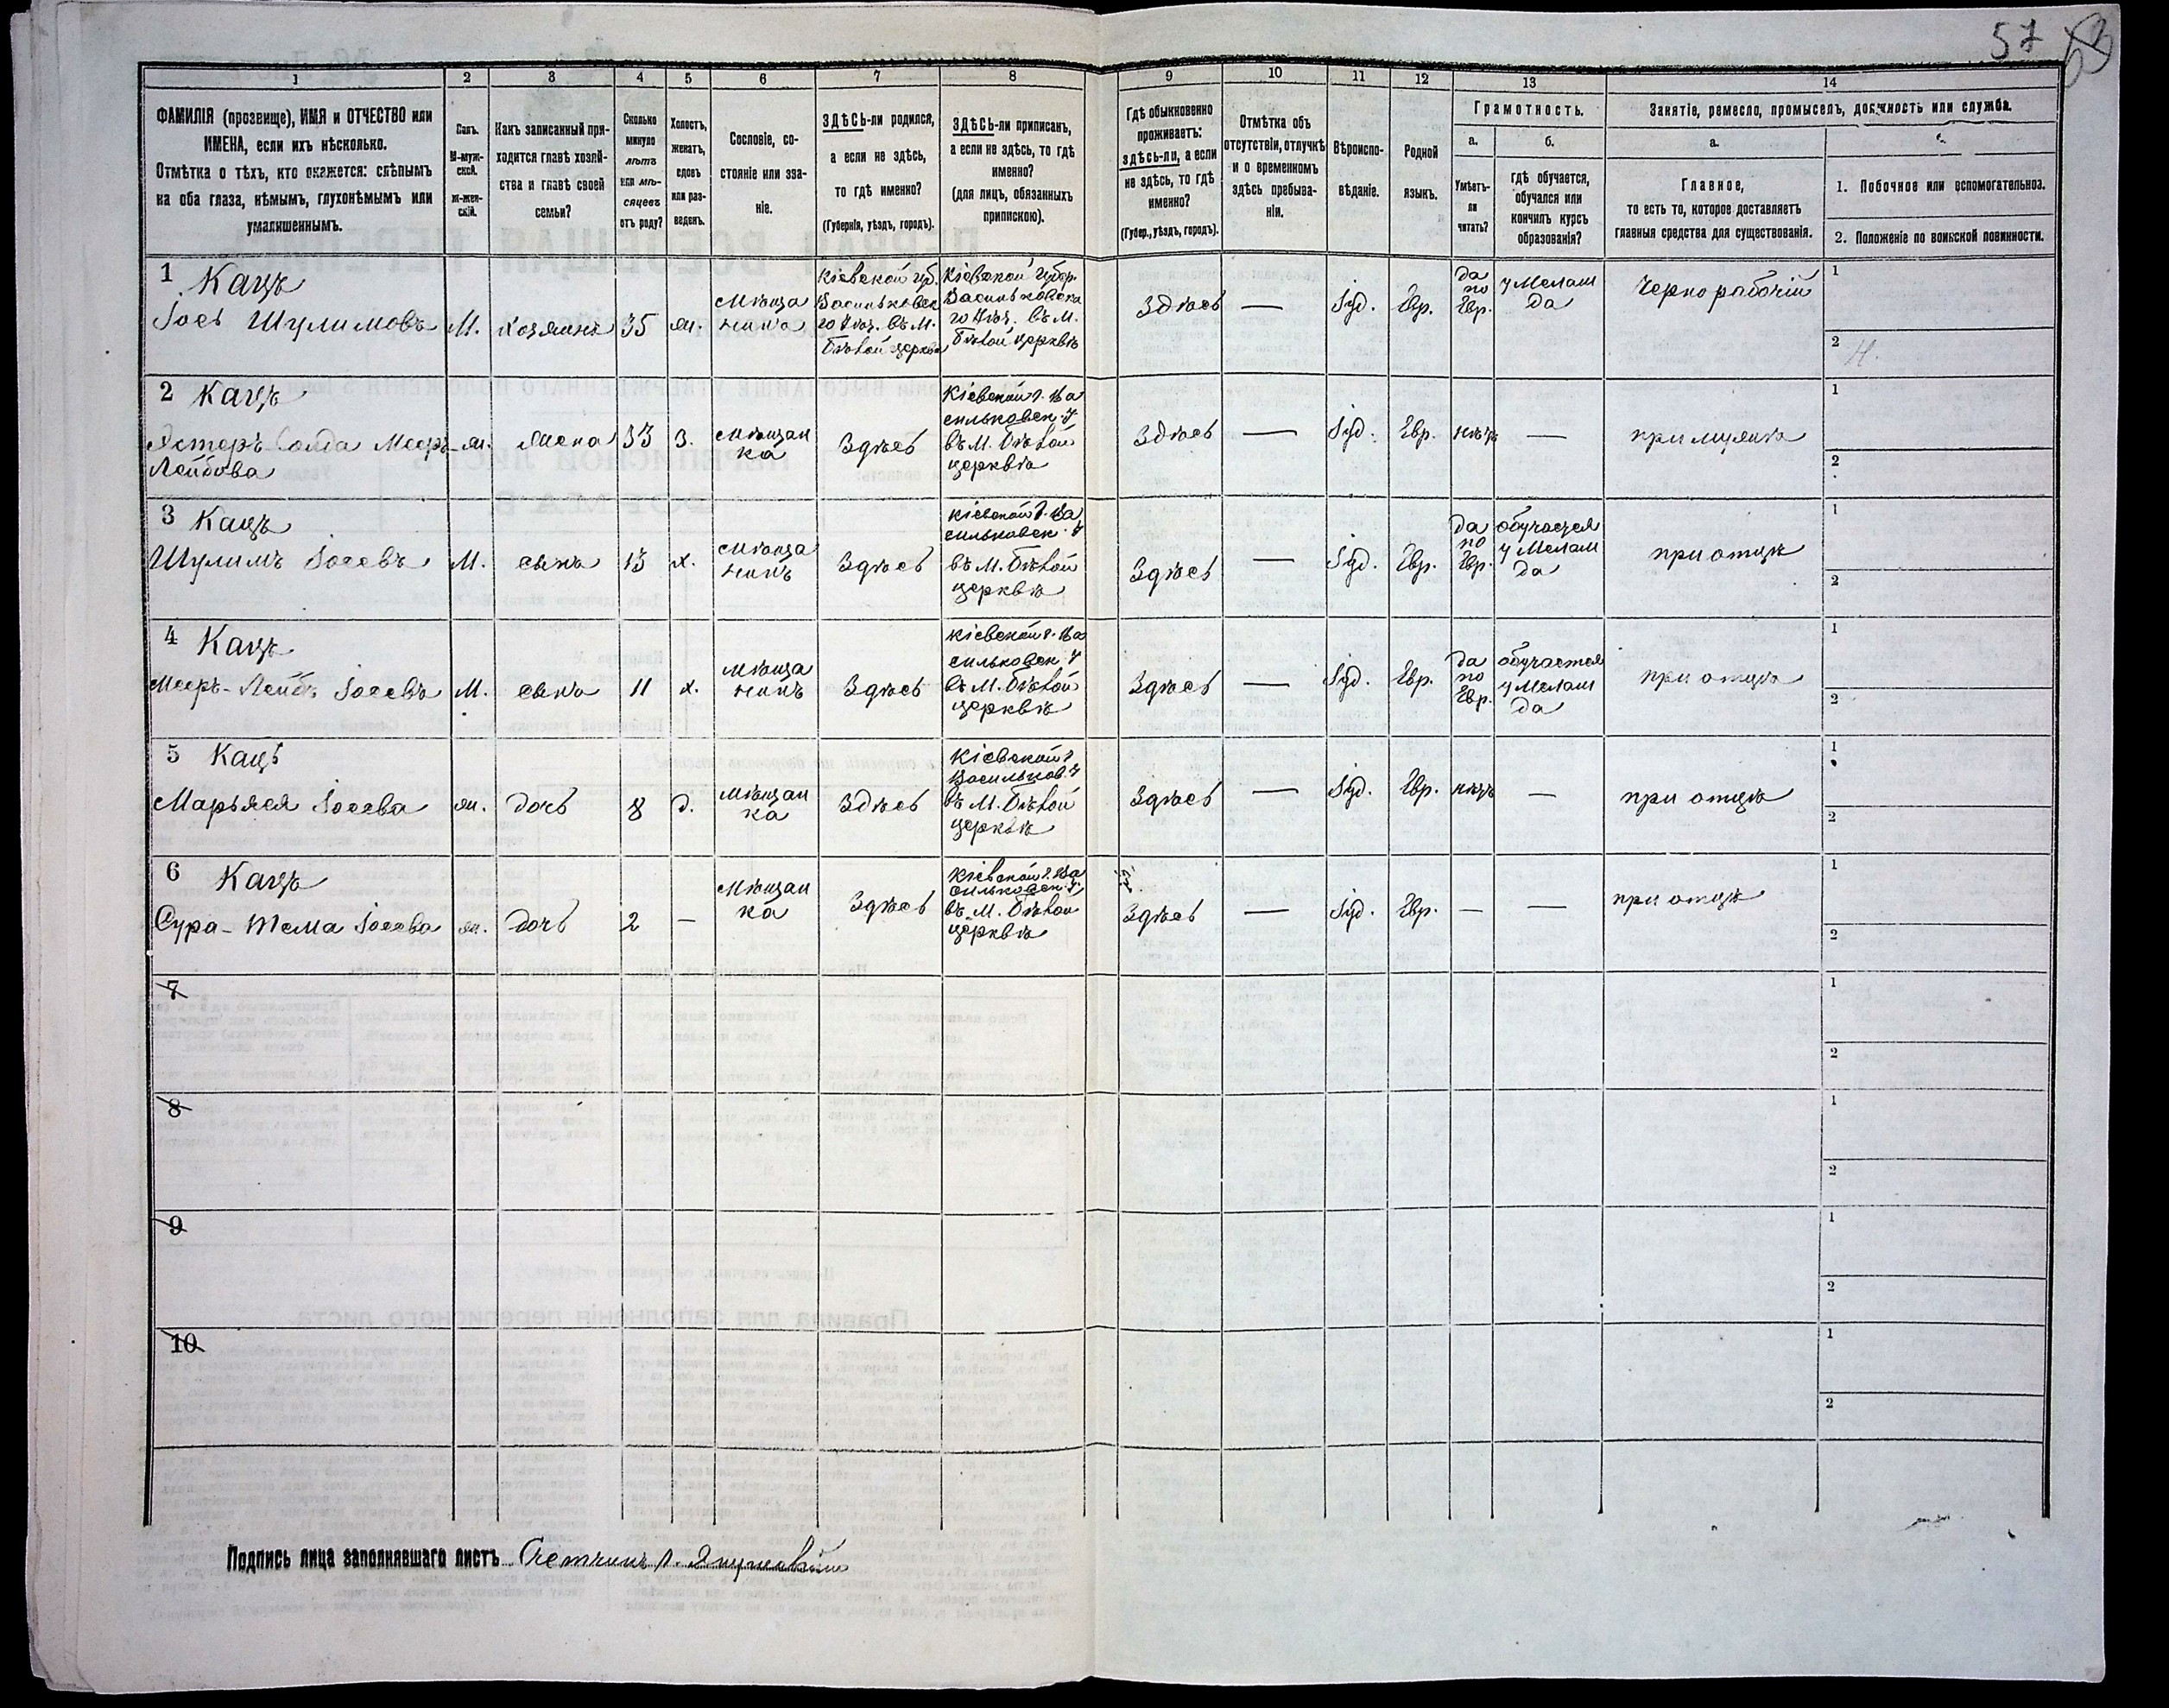 57
1 2 3 4 5 6 7 8 9 10 11 12 13 14
ФАМИЛІЯ (прозвище), ИМЯ и ОТЧЕСТВО или
ИМЕНА, если ихъ нѣсколько.
Отмѣтка о тѣхъ, кто окажется: слѣпымъ
на оба глаза, нѣмымъ, глухонѣмымъ или
умалишеннымъ.
Полъ.
М-муж-
ской.
Ж-жен-
скій.
Какъ записанный при-
ходится главѣ хозяй-
ства и главѣ своей
семьи?
Сколько
минуло
лѣтъ
или мѣ-
сяцевъ
отъ роду?
Холостъ,
женатъ,
вдовъ
или раз-
веденъ.
Сословіе, со-
стояніе или зва-
ніе.
ЗДѢСЬ-ли родился,
а если не здѣсь,
то гдѣ именно?
(Губернія, уѣздъ, городъ).
ЗДѢСЬ-ли приписанъ,
а если не здѣсь, то гдѣ
именно?
(для лицъ, обязанныхъ
припискою).
Гдѣ обыкновенно
проживаетъ:
здѣсь-ли, а если
не здѣсь, то гдѣ
именно?
(Губер., уѣздъ, городъ).
Отмѣтка объ
отсутствіи, отлучкѣ
и о временномъ
здѣсь пребыва-
ніи.
Вѣроиспо-
вѣданіе.
Родной
языкъ.
Грамотность.
а.
Умѣетъ-
ли
читать?
б.
гдѣ обучается,
обучался или
кончилъ курсъ
образованія?
Занятіе, ремесло, промыселъ, должность или служба.
а.
Главное,
то есть то, которое доставляетъ
главныя средства для существованія.
1. Побочное или вспомогательное.
2. Положеніе по воинской повинности.
1 Кацъ
Іось Шулимовъ
М.
хозяинъ
35
ж.
мѣща
нинъ
Кіевской губ.
Васильковск
го Уѣз. въ М.
Бѣлой церкви
Кіевской губер
Васильковска
го Уѣз. въ М.
Бѣлой церквѣ
Здѣсь
—
Іуд.
Евр.
да
по
Евр.
у Мелам
да
Чернорабочій
1
2 Н.
2 Кацъ
Мееръ-
Лейбова
ж.
жена
33
З.
мѣщан
ка
Здѣсь
Кіевской г. Ва
сильковск. у
въ М. Бѣлой
церквѣ
Здѣсь
—
Іуд.
Евр.
нѣтъ
—
при мужѣ
1
2
3 Кацъ
Шулимъ Іосевъ
М.
сынъ
13
х.
мѣща
нинъ
Здѣсь
Кіевской г. Ва
сильковск. у
въ М. Бѣлой
церквѣ
Здѣсь
—
Іуд.
Евр.
да
по
Евр.
обучается
у Мелам
да
при отцѣ
1
2
4 Кацъ
Мееръ-Лейбъ Іосевъ
М.
сынъ
11
х.
мѣща
нинъ
Здѣсь
Кіевской г. Ва
сильковск. у
въ М. Бѣлой
церквѣ
Здѣсь
—
Іуд.
Евр.
да
по
Евр.
обучается
у Мелам
да
при отцѣ
1
2
5 Кацъ
Марьяся Іосева
ж.
дочь
8
д.
мѣщан
ка
Здѣсь
Кіевской г
Васильков. у
въ М. Бѣлой
церквѣ
Здѣсь
—
Іуд.
Евр.
нѣтъ
—
при отцѣ
1
2
6 Кацъ
Сура-Тема Іосева
ж.
дочь
2
—
мѣщан
ка
Здѣсь
Кіевской г. Ва
сильковск. у.
въ М. Бѣлой
церквѣ
Здѣсь
—
Іуд.
Евр.
—
—
при отцѣ
1
2
7
1
2
8
1
2
9
1
2
10
1
2
Подпись лица заполнявшаго листъ Счетчикъ